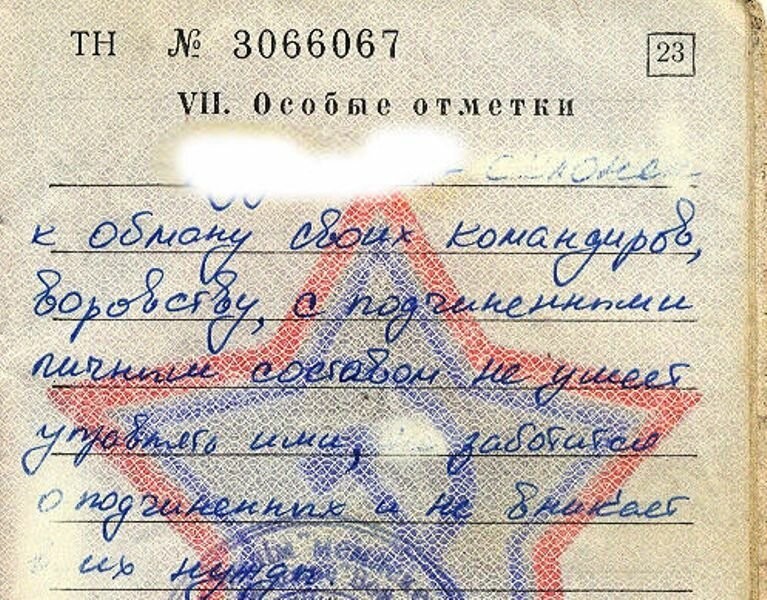 ТН № 3066067
23
VII. Особые отметки
к обману своих командиров,
воровству, с подчиненными
личным составом не умеет
управлять ими, заботится
о подчиненных и не вникает
их нужды.